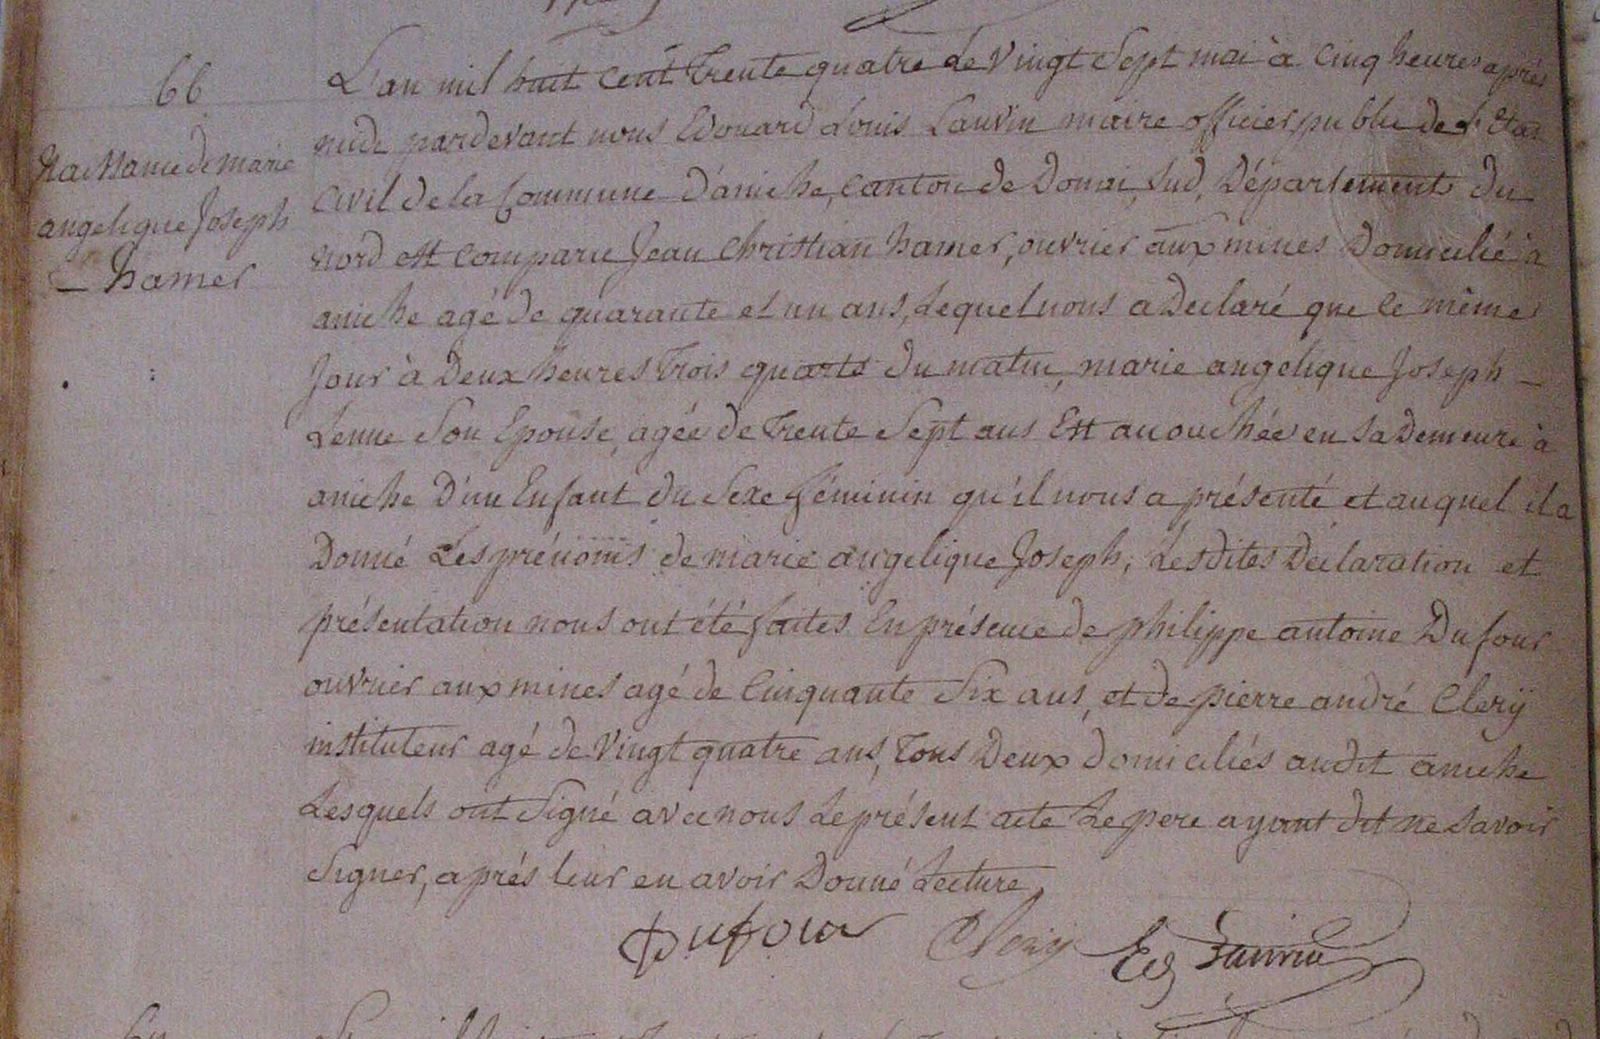 66
Naissance de marie
angelique Joseph
hamer
L'an mil huit cent trente quatre Le vingt Sept mai à cinq heures après
midi pardevant nous Edouard Louis Lanvin maire officier public de L'Etat
civil de la Commune d'aniche, canton de Douai, Sud, Département du
nord est comparu Jean Christian hamer, ouvrier aux mines Domicilié à
aniche agé de quarante et un ans, Lequel nous a Déclaré que le même
Jour à Deux heures trois quarts du matin, marie angelique Joseph
Lenne Son Epouse, agée de trente Sept ans Est accouchée en sa Demeure à
aniche D'un Enfant du Sexe féminin qu'il nous a présenté et auquel il a
Donné Les prénoms de marie angelique Joseph; Lesdites Déclaration et
présentation nous ont été faites En présence de philippe antoine Dufour
ouvrier aux mines agé de Cinquante Six ans, et de pierre andré Clerÿ
instituteur agé de vingt quatre ans, tous Deux domiciliés audit aniche
Lesquels ont Signé avec nous Le présent acte Le pere ayant dit ne Savoir
Signer, après leur en avoir Donné Lecture,
Dufour Clerÿ Ed Lanvin